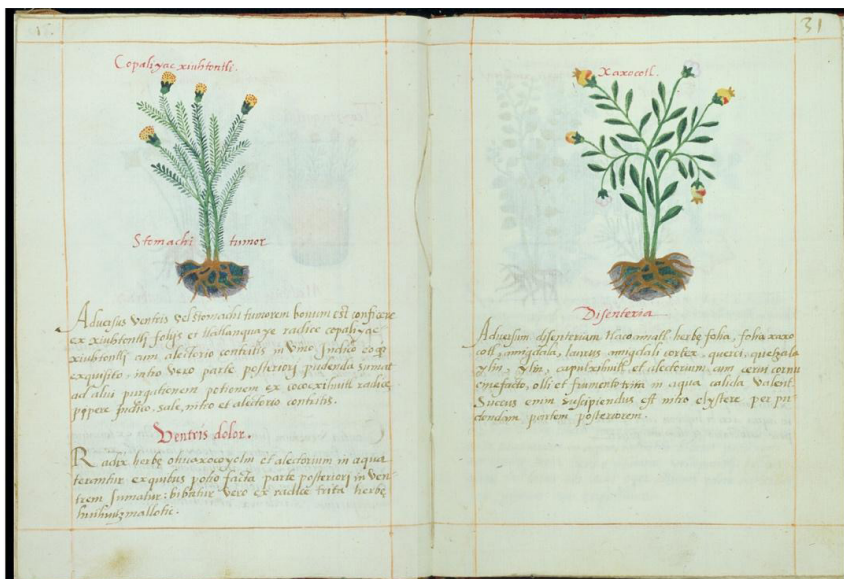 Copaliyac xiuhtontli.
Stomachi tumor
Adversus ventris vel stomachi tumorem bonum est conficere
ex xiuhtontli folijs et tlatlanquaye radice copaliyac
xiuhtontli cum alectorio contritis in vino Indico
exquisito, intro vero parte posteriorj pudenda sumat
ad alvi purgationem potionem ex cococxihuitl radice,
pipere Indico, sale, nitro et alectorio contritis.
Ventris dolor.
Radix herbę et alectorium in aqua
teruntur ex quibus potio facta parte posteriorj in ven
trem sumatur: bibatur vero ex radice trita herbę
31
Xaxocotl.
Disenteria
Adversum disenteriam tlacomatl herbę folia, folia xaxo
cotl, amigdala, laurus, amigdali cortex, querci, quetzala
ylin, ylin, capulxihuitl, et alectorium, cum cervi cornu
cinefacto, olli et frumento trita in aqua calida valent.
Succus enim suscipiendus est intro clystere per pu
dendam partem posteriorem.